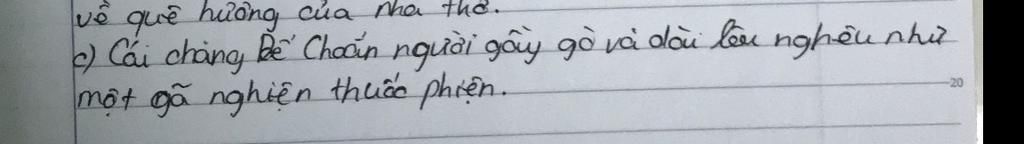 về quê hương của nhà thơ.
c) Cái chàng Dế Choắt người gầy gò và dài lêu nghêu như
một gã nghiện thuốc phiện.
20